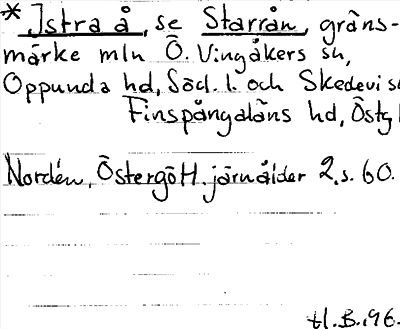 * Istra å, se Starrån, gräns-
märke mln Ö. Vingåkers sn,
Oppunda hd, Söd. l. och Skedevi sn
Finspångaläns hd, Östg l
Nordén, Östergötl. järnålder 2, s. 60.
H.B. 96.